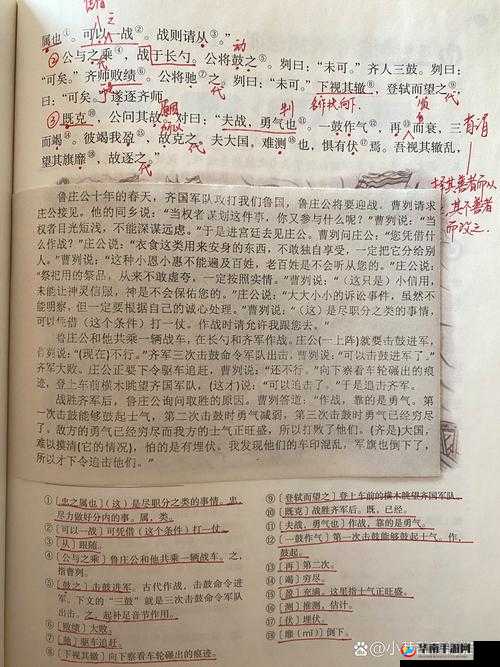 属也②。可以一战。战则请从③。”
②公与之乘④，战于长勺。公将鼓之⑤。刿曰：“未可。”齐人三鼓。刿曰：
“可矣。”齐师败绩⑥。公将驰⑦之。刿曰：“未可。”下视其辙⑧，登轼而望之⑨，
曰：“可矣。”遂逐齐师。
③既克⑩，公问其故。对曰：“夫战，勇气也⑪。一鼓作气⑫，再⑬而衰，三
而竭⑭。彼竭我盈⑮，故克之。夫大国，难测⑯也，惧有伏⑰焉。吾视其辙乱，
望其旗靡⑱，故逐之。”
鲁庄公十年的春天，齐国军队攻打我们鲁国，鲁庄公将要迎战。曹刿请求
庄公接见。他的同乡说：“当权者谋划这件事，你又参与什么呢？”曹刿说：“当
权者目光短浅，不能深谋远虑。”于是进宫廷去见庄公。曹刿问庄公：“您凭借什
么作战？”庄公说：“衣食这类用来安身的东西，不敢独自享受，一定把它分给别
人。”曹刿说：“这种小恩小惠不能遍及百姓，老百姓是不会听从您的。”庄公说：
“祭祀用的祭品，从来不敢虚夸，一定按照实情。”曹刿说：“（这只是）小信用，
未能让神灵信服，神是不会保佑您的。”庄公说：“大大小小的诉讼事件，虽然不
能明察，但一定要根据自己的诚心处理。”曹刿说：“（这）是尽职分之类的事情，
可以凭借（这个条件）打一仗。作战时请允许我跟您去。”
鲁庄公和他共乘一辆战车，在长勺和齐军作战。庄公（一上阵）就要击鼓进军，
曹刿说：“（现在）不行。”齐军三次击鼓命令军队出击，曹刿说：“可以击鼓进军了。”
齐军大败。庄公正要下令驱车追赶，曹刿说：“还不行。”向下察看车轮碾出的痕
迹，登上车前横木眺望齐国军队，（这才）说：“可以追击了。”于是追击齐军。
战胜齐军后，鲁庄公询问取胜的原因。曹刿答道：“作战，靠的是勇气。第
一次击鼓能够鼓起士气，第二次击鼓时勇气减弱，第三次击鼓时勇气已经穷尽
了。敌方的勇气已经穷尽而我方的士气正旺盛，所以打败了他们。（齐是）大国，
难以摸清（它的情况），怕的是有埋伏。我发现他们的车印混乱，军旗也倒下了，
所以才下令追击他们。”
①〔忠之属也〕（这）是尽职分之类的事情。忠，
尽力做好分内的事。属，类。
②〔可以一战〕可凭借（这个条件）打一仗。
③〔从〕跟随。
④〔公与之乘〕鲁庄公和他共乘一辆战车。之，
指曹刿。
⑤〔鼓之〕击鼓进军。古代作战，击鼓命令进
军。下文的“三鼓”就是三次击鼓命令军队
出击。之，起补足音节作用。
⑥〔败绩〕大败。
⑦〔驰〕驱车追赶。
⑧〔下视其辙〕向下察看车轮碾出的痕迹。
⑨〔登轼而望之〕登上车前的横木眺望齐国军队。
⑩〔既克〕战胜齐军后。既，已经。
⑪〔夫战，勇气也〕作战，靠的是勇气。
⑫〔一鼓作气〕第一次击鼓能够鼓起士气。作，
鼓起。
⑬〔再〕第二次。
⑭〔竭〕穷尽。
⑮〔盈〕充满。这里指士气正旺盛。
⑯〔测〕推测，估计。
⑰〔伏〕埋伏。
⑱〔靡（mǐ）〕倒下。
华南手游网